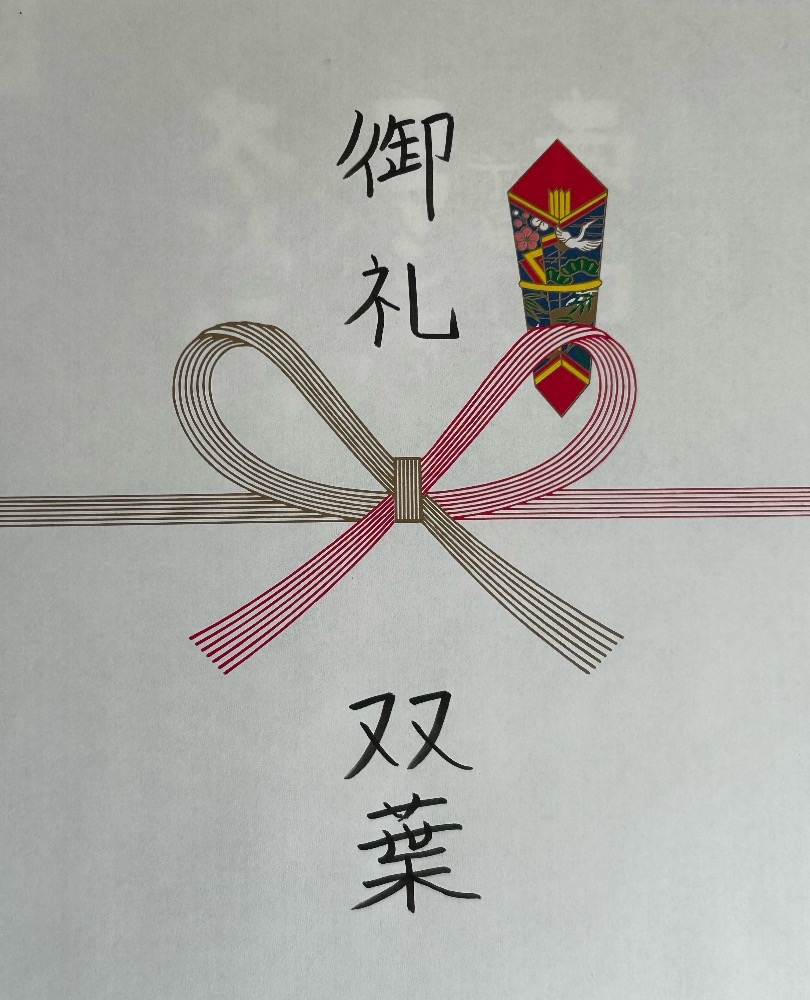 御礼
双葉